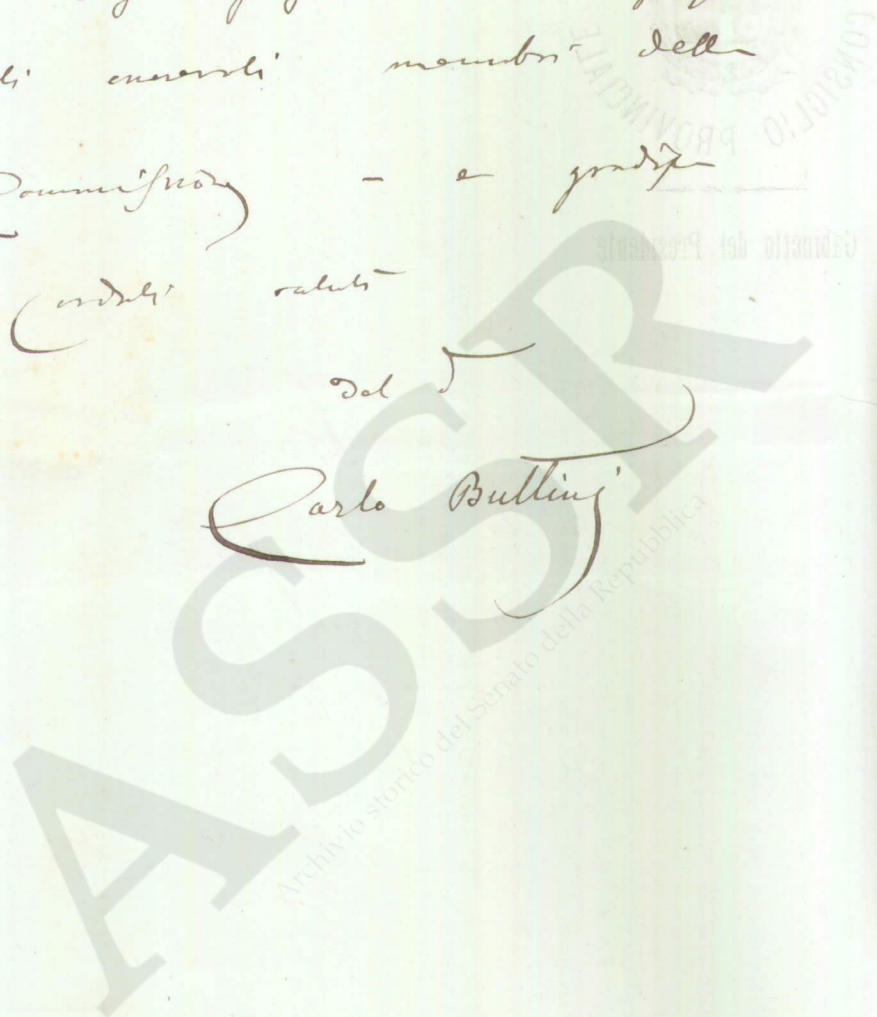 onorevoli membri della
Commissione – e gradisca
Cordiali saluti
dal
Carlo Bullini
CONSIGLIO PROVINCIALE
Gabinetto del Presidente
ASSR
Archivio storico del Senato della Repubblica